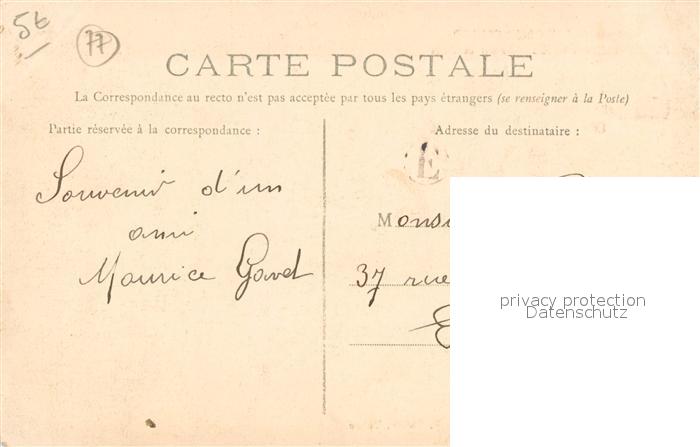 56
77
CARTE POSTALE
La Correspondance au recto n'est pas acceptée par tous les pays étrangers (se renseigner à la Poste)
Partie réservée à la correspondance :
Adresse du destinataire :
E
Souvenir d'un
ami
Maurice Gavet
Monsi
37 rue
privacy protection
Datenschutz